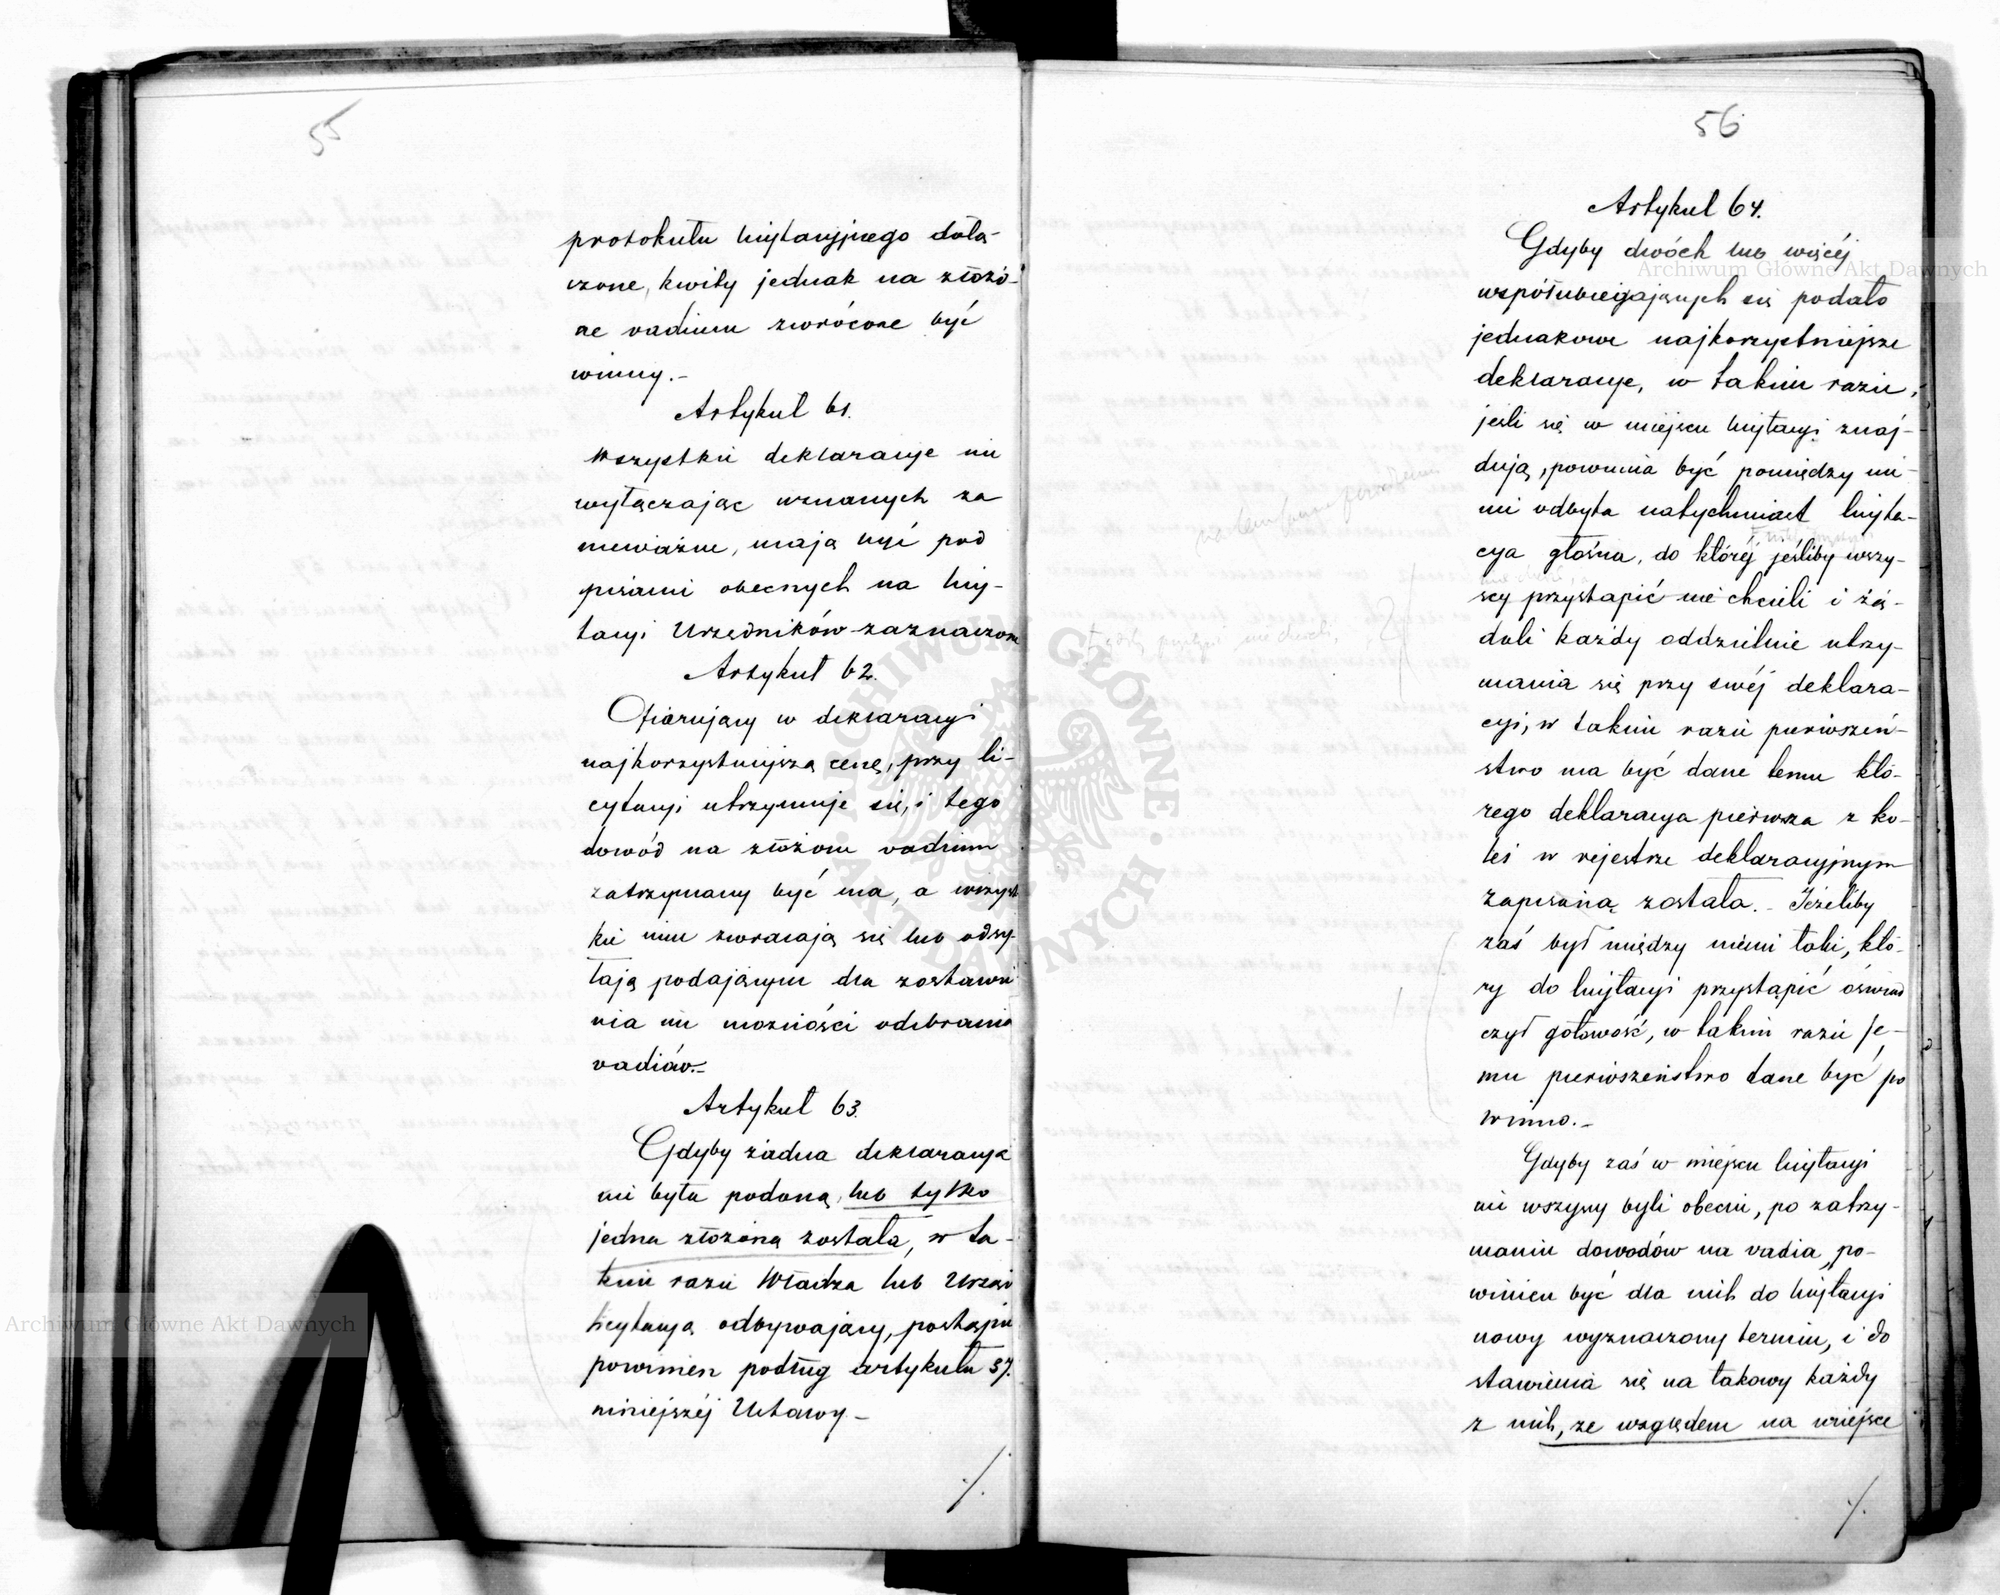 55
protokułu licytacyjnego dołą-
czone, kwity jednak na złożo-
ne vadium zwrócone być
winny.-
Artykuł 61.
Wszystkie deklaracye nie
wyłączając uznanych za
nieważne, mają być pod
pisami obecnych na licy-
tacyi Urzędników zaznaczone
Artykuł 62.
Ofiarujący w deklaracyi
najkorzystniejszą cenę, przy li-
cytacyi utrzymuje się, i tego
dowód na złożone vadium
zatrzymany być ma, a wszyst
kie inne zwracają się lub odsy-
łają podającym dla zostawie
nia im możności odebrania
vadiów.-
Artykuł 63.
Gdyby żadna deklaracya
nie była podaną, lub tylko
jedna złożoną została, w ta-
kim razie Władza lub Urząd
licytacyą odbywający, postąpić
powinien podług artykułu 37.
niniejszéj Ustawy-
./.
56
Artykuł 64.
Gdyby dwóch lub więcéj
współubiegających się podało
jednakowe najkorzystniejsze
deklaracye, w takim razie,
jeśli się w miejscu licytacyi znaj-
dują, powinna być pomiędzy ni-
mi odbyta natychmiast licyta-
cya głośna, do któréj jeśliby wszy-
scy przystąpić nie chcieli i żą-
dali każdy oddzielnie utrzy-
mania się przy swéj deklara-
cyi, w takim razie pierwszeń-
stwo ma być dane temu któ-
rego deklaracya pierwsza z ko-
lei w rejestrze deklaracyjnym
zapisaną została.- Jeżeliby
zaś był między niemi taki, któ-
ry do licytacyi przystąpić oświad
czył gotowość, w takim razie je-
mu pierwszeństwo dane być po
winno.-
Gdyby zaś w miejscu licytacyi
nie wszyscy byli obecni, po zatrzy-
maniu dowodów na vadia, po-
winien być dla nich do licytacyi
nowy wyznaczony termin, i do
stawienia się na takowy każdy
z nich, ze względem na miejsce
./.
Archiwum Główne Akt Dawnych
Archiwum Główne Akt Dawnych
ARCHIWUM GŁÓWNE AKT DAWNYCH